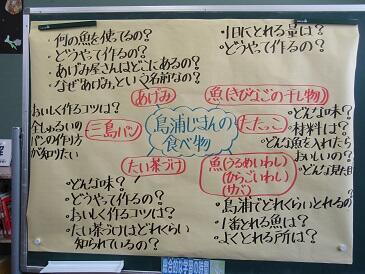 ・何の魚を使ってるの?
・どうやって作るの?
・あげみ屋さんはどこにあるの?
・なぜ「あげみ」という名前なの?
あげみ
・1日にとれる量は?
・どうやって作るの?
魚(きびなごの干し物)
おいしく作るコツは?
全しゅるいの
パンの作り方
が知りたい
三島パン
島浦じまんの
食べ物
たたっこ
・どんな味?
・材料は?
・どんな魚を入れたら
おいしいの?
・どんな見た目
たい茶づけ
・どんな味?
・どうやって作るの?
・おいしく作るコツは?
・たい茶づけはどれくらい
知られているの?
魚(うるめいわし)
・島浦でどれくらいとれるの?
・1番とれる魚は?
・よくとれる所は?
総合的な学習の時間